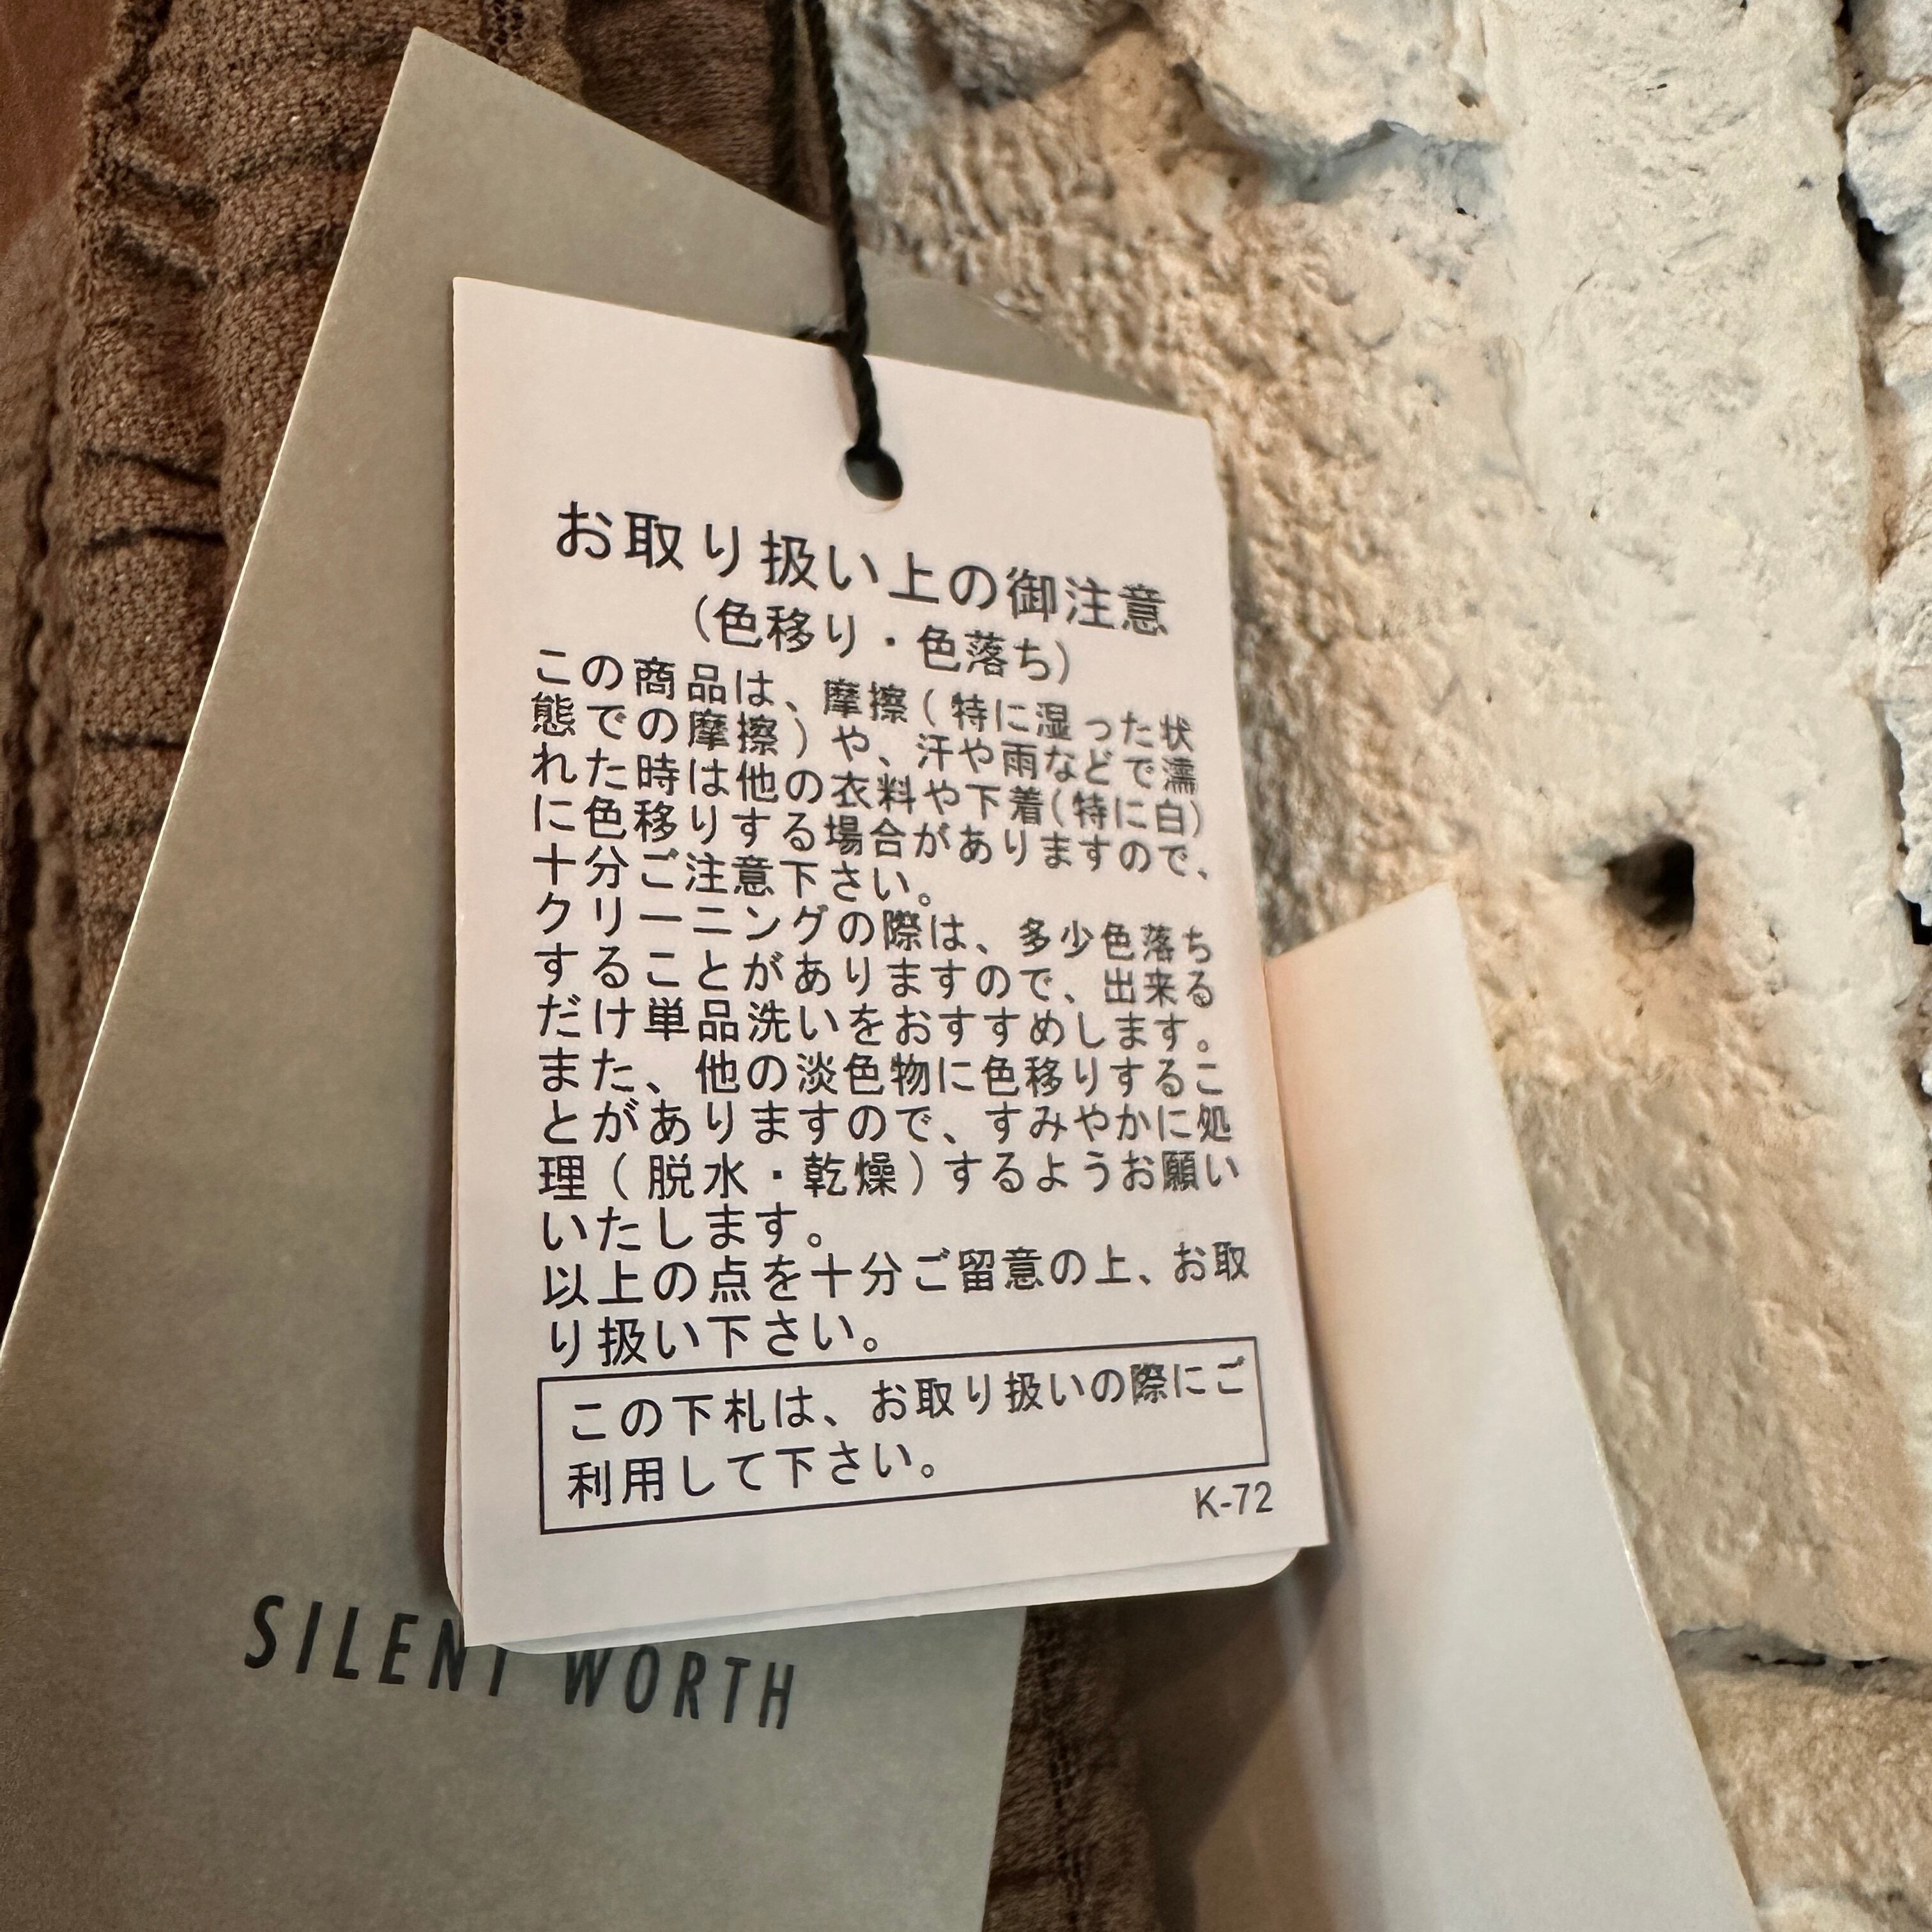 お取り扱い上の御注意
(色移り・色落ち)
この商品は、摩擦(特に湿った状
態での摩擦)や、汗や雨などで濡
れた時は他の衣料や下着(特に白)
に色移りする場合がありますので、
十分ご注意下さい。
クリーニングの際は、多少色落ち
することがありますので、出来る
だけ単品洗いをおすすめします。
また、他の淡色物に色移りするこ
とがありますので、すみやかに処
理(脱水・乾燥)するようお願い
いたします。
以上の点を十分ご留意の上、お取
り扱い下さい。
この下札は、お取り扱いの際にご
利用して下さい。
K-72
SILENT WORTH